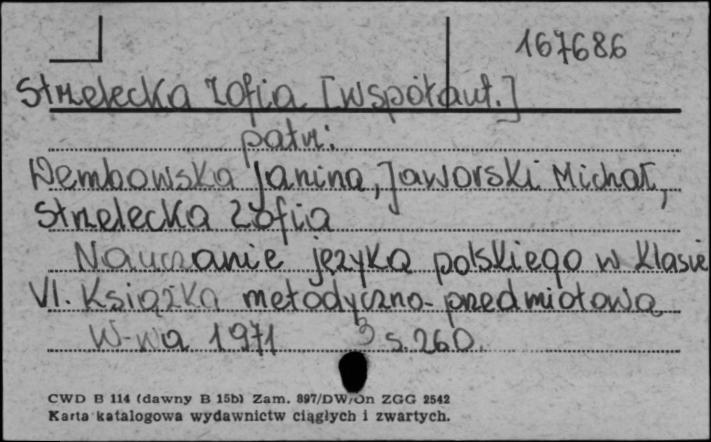 167686
Strzelecka Zofia [współaut.]
patrz:
Dembowska Janina, Jaworski Michał,
Strzelecka Zofia
Nauczanie języka polskiego w klasie
VI. Książka metodyczno-przedmiotowa
W-wa 1971 s. 260.
CWD B 114 (dawny B 15b) Zam. 897/DW/On ZGG 2542
Karta katalogowa wydawnictw ciągłych i zwartych.